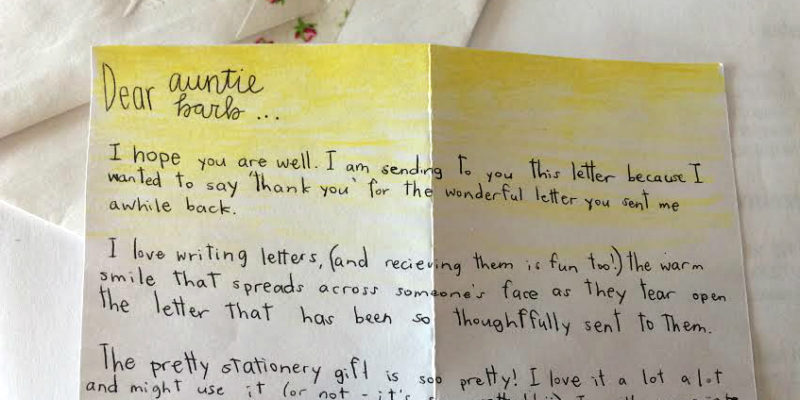 Dear auntie
barb...
I hope you are well. I am sending to you this letter because I
wanted to say 'thank you' for the wonderful letter you sent me
awhile back.
I love writing letters, (and recieving them is fun too!) the warm
smile that spreads across someone's face as they tear open
the letter that has been so thoughffully sent to them.
The pretty stationery gift is soo pretty! I love it a lot a lot
and might use it (or not - it's